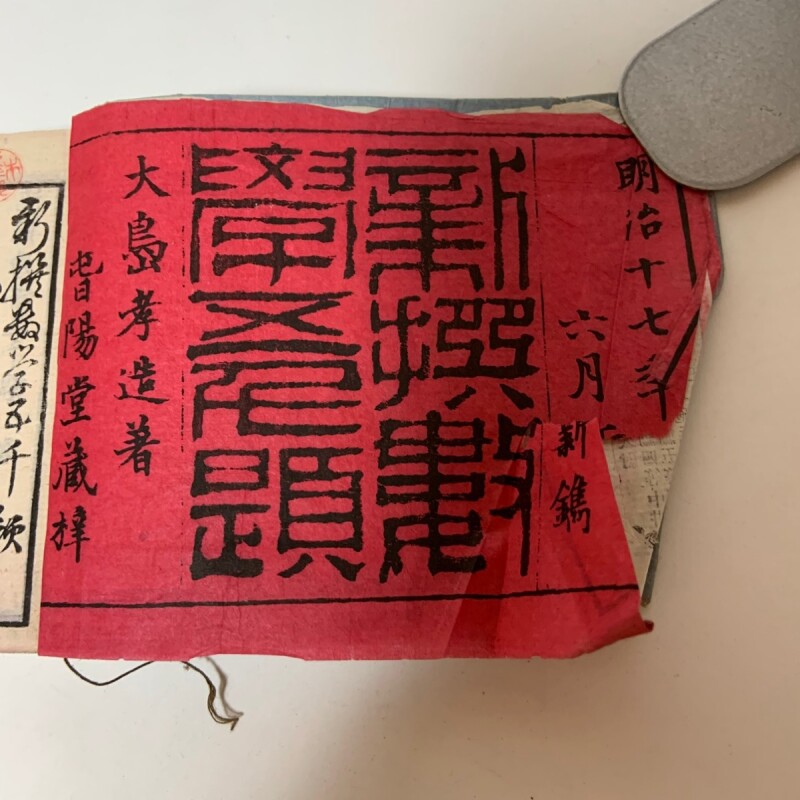 明治十七年
六月新鐫
新撰數
學五千題
大島孝造著
旾陽堂藏梓
新撰數学五千題